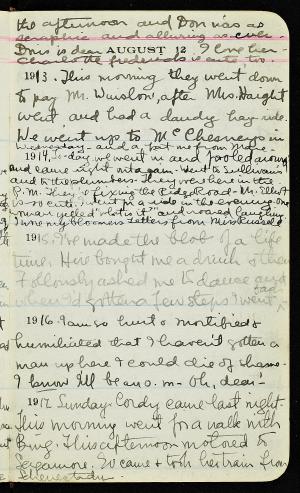 the afternoon and Don was as
seraphic and alluring as ever.
Don is dear AUGUST 12. I love her-
Charlotte Frederick is cute too.
1913. This morning they went down
to pay Mr. Winslow, after Mrs. Haight
went and had a dandy hay-ride.
We went up to McChesneys in
Wednesday - and a, from Mde -
1914. To-day we went in and fooled around
and came right out again. Went to Sullivans
and to the plumbers. They was here in the
P.M. They're fixing the Ridge Road - Mr. Elliot
is so cute. Went for a ride in the evening one
man yelled "hot is it?" and roared laughing.
I wore my bloomers. Letters from Miss Russell
1915. I've made the blob of a life
time. Her bought me a drink & then
Follonsly asked me to dance and
when I'd gotten a few steps I went
1916. I am so hurt & mortified &
humiliated that I haven't gotten a
man up here & could die of shame.
I know I'll be an o. m - Oh, dear -
1917. Sunday. Cordy came last night.
This morning went for a walk with
Bing. This afternoon motored to
Sagamore. Ev came & took her tram from
Schenectady.